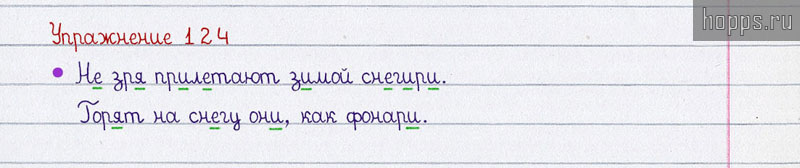 hopps.ru
Упражнение 124
• Не зря прилетают зимой снегири.
Горят на снегу они, как фонари.